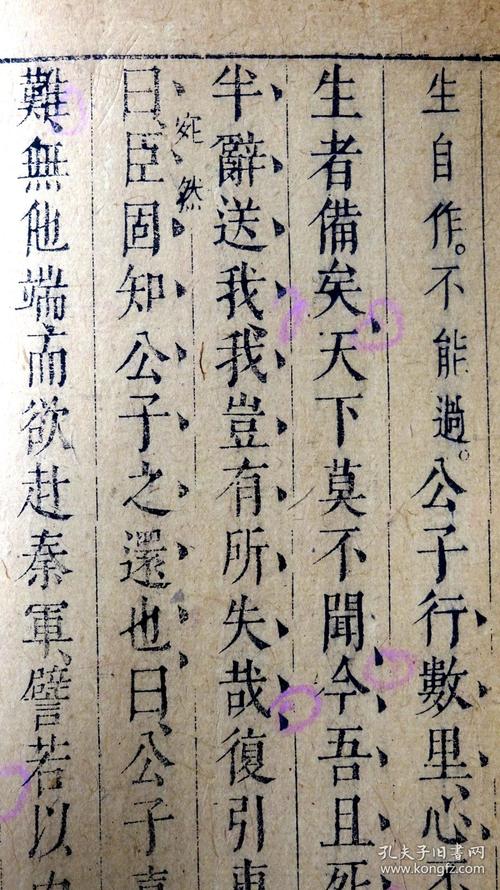 生自作。不能過。公子行數里、心
生者備矣、天下莫不聞、今吾且死
半辭送我、我豈有所失哉、復引車
宛然
曰、臣固知公子之還也、曰、公子喜
難、無他端而欲赴秦軍、譬若以肉
孔夫子旧书网
www.kongfz.com